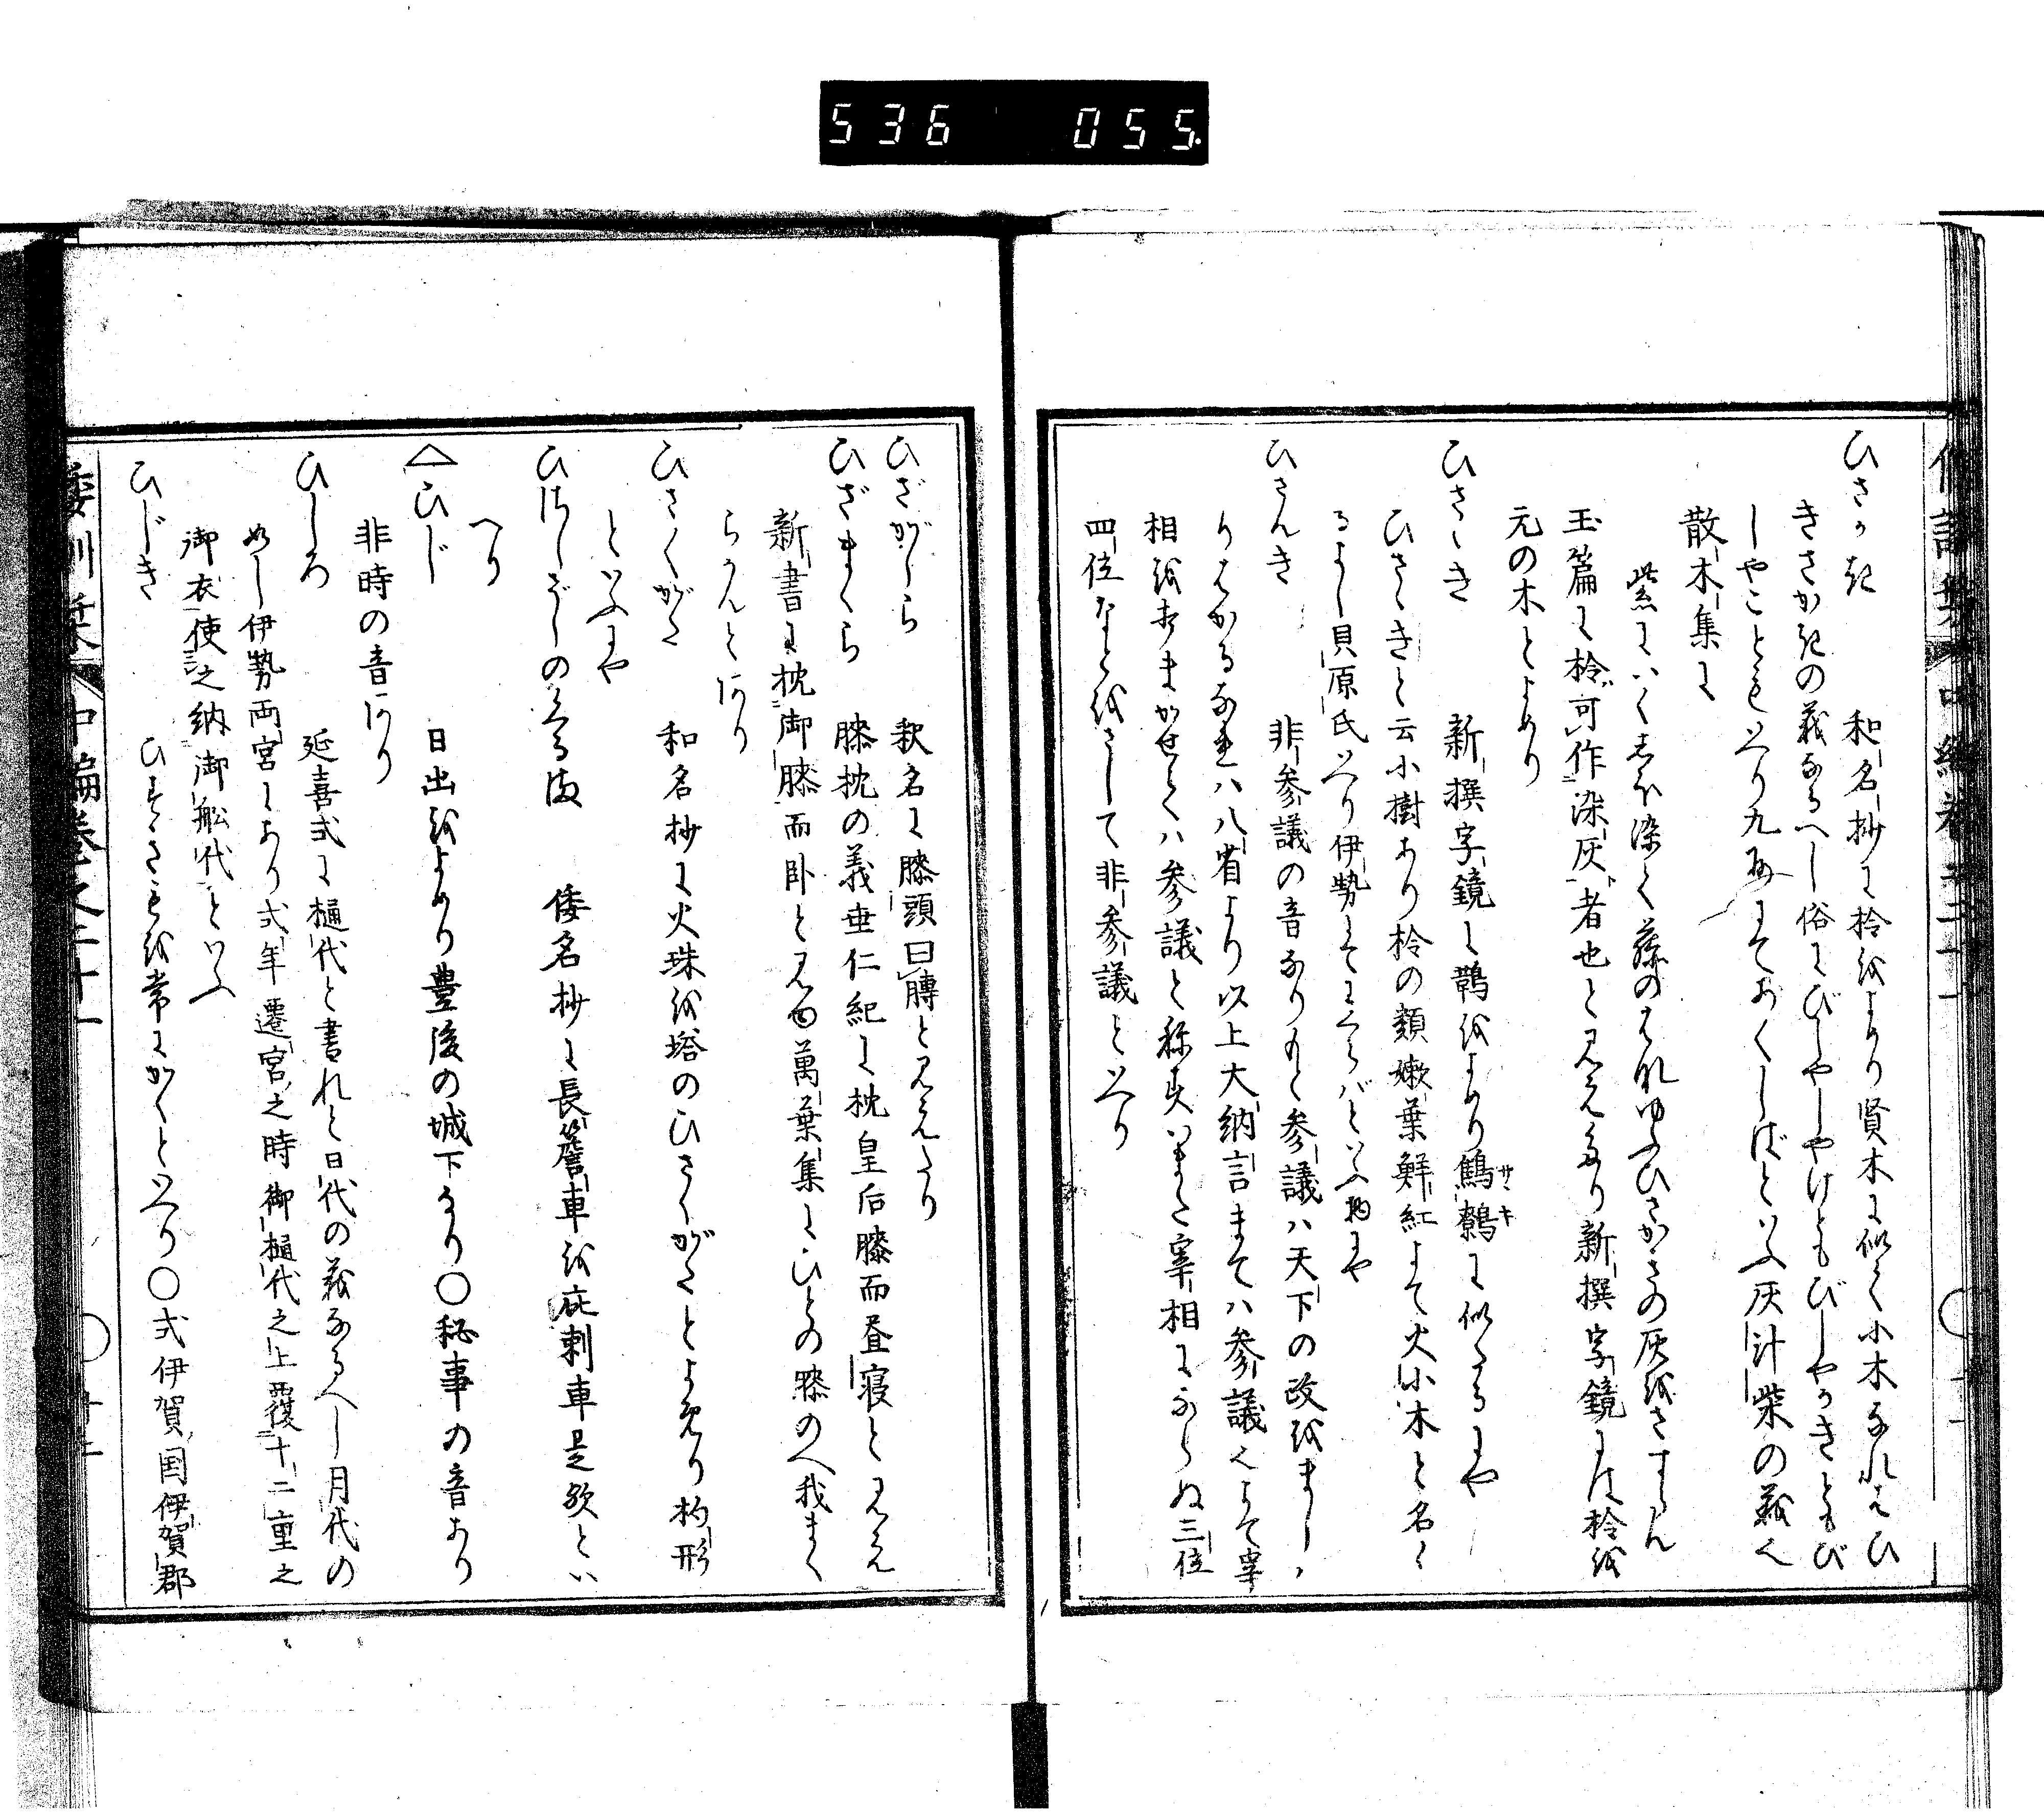 536 055.
ひさかき 和名抄に柃をよめり賢木に似て小木なれはひ
きさかきの義なるへし俗にびしやしやけともびしやかきともび
しやこともいへり九州にておくしばといふ灰汁柴の義也
散木集に
紫にいくしほ染て藤のはなゆふひさかきの灰をさすらん
玉篇に柃可作染灰者也と見えたり新撰字鏡には柃を
元の木とよめり
ひさゝき 新撰字鏡に鵲をよめり鷦鷯に似たるにや
サヽキ
ひさゝきと云小樹あり柃の類嫩葉鮮紅にて火小木と名く
るよし貝原氏いへり伊勢にてにくらバといふ物にや
ひさんき 非参議の音なりもと参議ハ天下の政をまし
りはかるなれハ八省より以上大納言まてハ参議也よて宰
相をおまかせとてハ参議と称すいまた宰相にならぬ三位
四位なとをさして非参議といへり
ひざがしら 釈名に膝頭曰膞と見えたり
ひざまくら 膝枕の義垂仁紀に枕皇后膝而昼寝と見え
新書に枕御膝而卧と見ゆ萬葉集にひとの膝のへ我まく
らかんとあり
ひさくがた 和名抄に火珠を塔のひさくがたとよめり杓形
といふにや
ひさしざしのくるま 倭名抄に長簷車を庇刺車是欤とい
へり
△ひじ 日出をよめり豊後の城下なり〇秘事の音あり
非時の音あり
ひしろ 延喜式に樋代と書れと日代の義なるへし月代の
如し伊勢両宮にあり式年遷宮之時御樋代之上覆十二重之
御衣使之納御舩代といふ
ひじき ひすきもを常にかくといへり〇式伊賀国伊賀郡
倭訓栞 中編巻之二十一